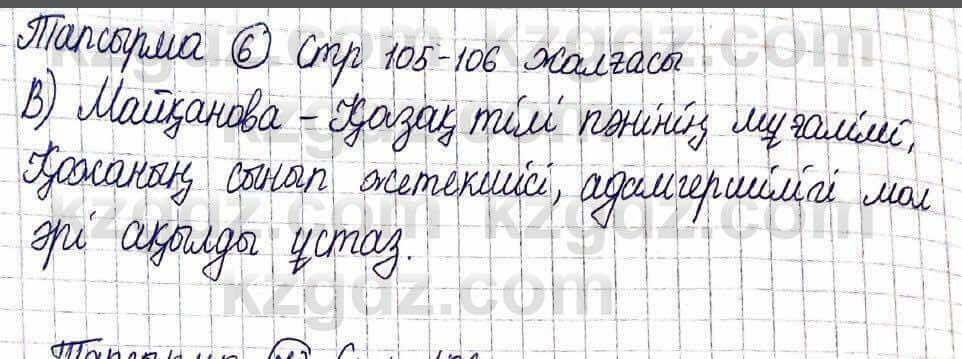 Тапсырма 6 Стр 105-106 жалғасы
В) Майқанова - Қазақ тілі пәнінің мұғалімі,
Қожаның сынып жетекшісі, адамгершілігі мол
әрі ақылды ұстаз.
kzgdz.com